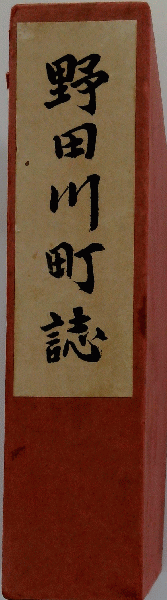 野田川町誌